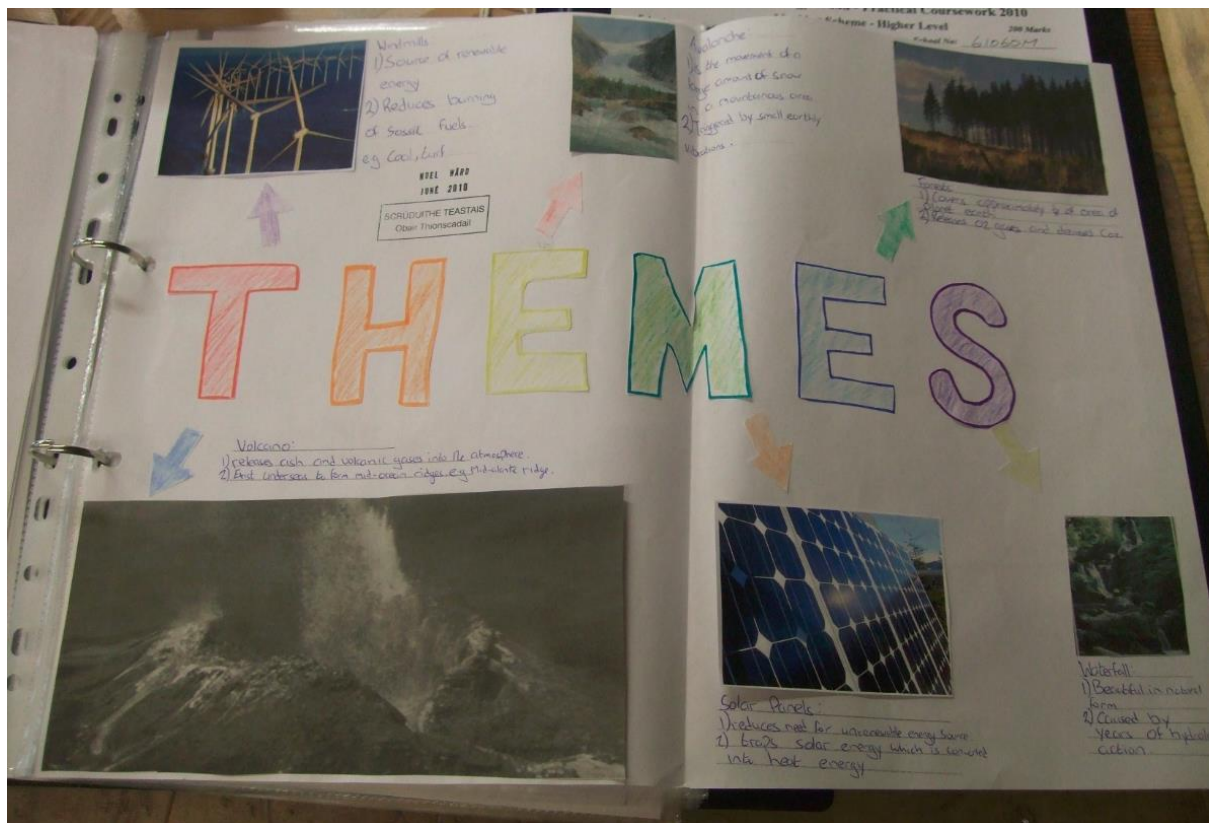 Practical Coursework 2010
Scheme - Higher Level
200 Marks
School No: 61060M
Windmills
1) Source of renewable
energy
2) Reduces burning
of fossil fuels.
e.g Coal, turf.
NOEL WARD
JUNE 2010
SCRÚDUITHE TEASTAIS
Obair Thionscadail
Avalanche:
1) Is the movement of a
large amount of snow
in a mountainous area
2) Triggered by small earthly
vibrations.
Forests
1) Covers approximately of area of
planet earth
2) Releases O2 gases and
THEMES
Volcano:
1) releases ash and volcanic gases into the atmosphere.
2) Exist undersea to form mid-ocean ridges e.g Mid-atlantic ridge.
Solar Panels:
1) reduces need for unrenewable energy source
2) traps solar energy which is converted
into heat energy
Waterfall:
1) Beautiful in natural
form
2) Caused by
years of
action.